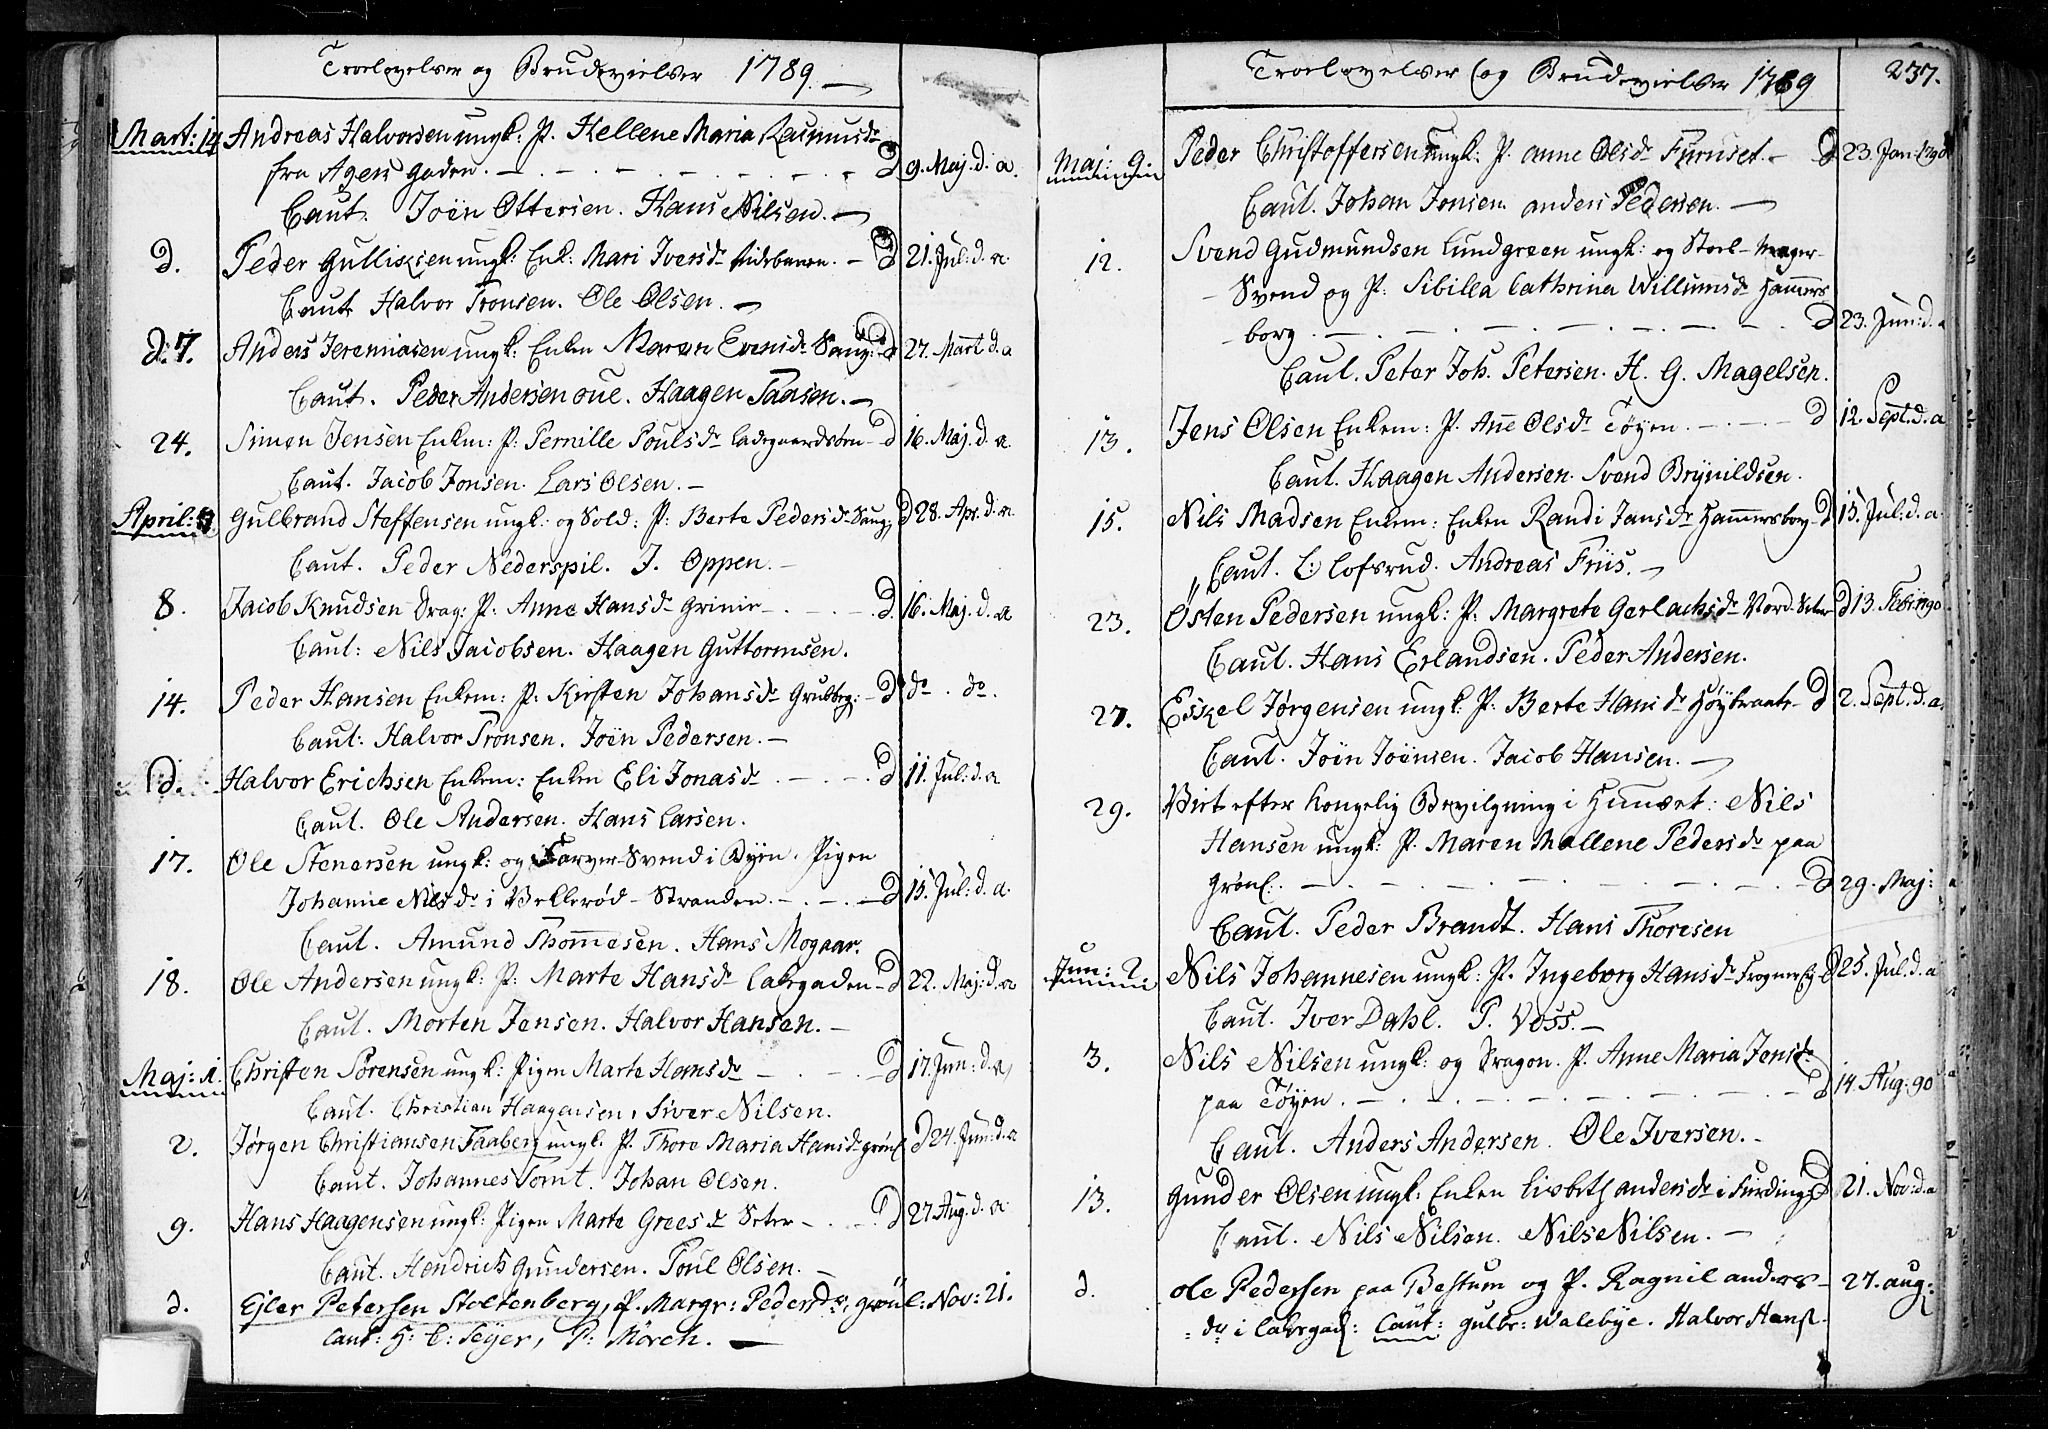 Troelovelser og Brudevielser 1789.
Mart: 14 Andreas Halvorsen ungk: P. Hellene Maria Rasmusdr
fra Agers gaden. D 9. Maj. d. a.
Caut. Joën Ottersen. Hans Nilsen.
d. Peder Gullixsen ungk: Enk: Mari Iversdr D 21. Jul: d. a.
Caut Halvor Tronsen. Ole Olsen.
d. 7. Anders Jeremiasen ungk: Enken Maren Evensdr Saug: D 27. Mart d. a
Caut. Peder Andersen oüe. Haagen Paasen.
24. Simen Jensen Enkem: P: Pernille Poulsdr ladegaardsøen D 16. Maj. d. a.
Caut. Jacob Jonsen. Lars Olsen.
April: Gulbrand Steffensen ungk: og Sold: P: Berte Pedersdr Saug D 28. Apr. d. a.
Caut. Peder Nederspil. J. Oppen.
8. Jacob Knudsen Drag: P: Anne Hansdr Grinie D. 16. Maj. d. a
Caut: Nils Jacobsen. Haagen Guttormsen.
14. Peder Hansen Enkem: P: Kirsten Johansdr Grubbeg: D do. do.
Caut: Halvor Tronsen. Joën Pedersen.
d. Halvor Erichsen Enkem: Enken Eli Jonasdr D 11. Jul: d. a
Caut. Ole Andersen. Hans Larsen.
17. Ole Stenersen ungk: og Farver-Svend i Byen. Pigen
Johanne Nilsdr i Vellerød-Stranden. D 15. Jul: d. a.
Caut. Amund Thommesen. Hans Mogaar.
18. Ole Andersen ungk: P: Marte Hansdr Lakegaden D 22. Maj: d. a
Caut. Morten Jensen. Halvor Hansen.
Maj: 1. Christen Sørensen ungk: Pigen Marte Hansdr D 17. Jun: d. a,
Caut. Christian Haagensen, Siver Nilsen.
2. Jørgen Christiansen Faaberg ungk. P. Thore Maria Hansdr grönl D 24. Jun: d. a
Caut. Johannes Tomt. Johan Olsen.
9. Hans Haagensen ungk: Pigen Marte Greesdr Seter D 27. Aug. d. a.
Caut. Hendrich Gundersen. Poul Olsen.
d. Ejler Petersen Stoltenberg, P. Margr: Pedersdr, grönl: Nov: 21.
Caut: H: C: Sejer, P: Mörch.
Troelovelser og Brudevielser 1789 237.
Maj: 9. Peder Christoffersen ungk: P. Anne Olsdr Furuset. D 23. Jan. 1790
Caut. Johan Jonsen. Anders Pedersen.
12. Svend Gudmundsen Lundgreen ungk: og Stoel-Mager-
Svend og P. Sibilla Cathrina Willumsdr Hammers
borg. D 23. Jun: d. a
Caut. Peter Joh. Petersen. H. G. Magelsen.
13. Jens Olsen Enkem: P. Anne Olsdr Tøyen. D 12. Sept. d. a
Caut. Haagen Andersen. Svend Brynildsen.
15. Nils Madsen Enkem: Enken Randi Jansdr Hammersborg D 15. Jul: d. a.
Caut. L: Lofsrud. Andreas Friis.
23. Østen Pedersen ungk: P: Margrete Gerlachsdr Nord-Seter D 13. Febr: 1790
Caut. Hans Erlandsen. Peder Andersen.
27. Eskel Jørgensen ungk: P: Berte Hansdr Høybraate D 2. Sept. d. a.
Caut. Joën Joënsen. Jacob Hansen.
29. Viet efter Kongelig Bevilgning i Huuset: Nils
Hansen ungk: P. Maren Mallene Pedersdr paa
Grönl. D 29. Maj:
Caut. Peder Brandt. Hans Thoresen
Jun: 2. Nils Johannesen ungk: P. Ingeborg Hansdr Frogner D 25. Jul. d. a
Caut. Iver Dahl. P. Voss.
3. Nils Nilsen ungk: og Dragon. P. Anne Maria Jensdr
paa Tøyen. D 14. Aug: 90
Caut. Anders Andersen. Ole Iversen.
13. Gunder Olsen ungk: Enken Lisbeth Andersdr i Fierding D 21. Nov: d. a
Caut. Nils Nilsen. Nils Nilsen.
d. Ole Pedersen paa Bestum og P. Ragnil Anders- 27. Aug:
dr i Lakegad: Caut: Gulbr: Walebye. Halvor Hans.